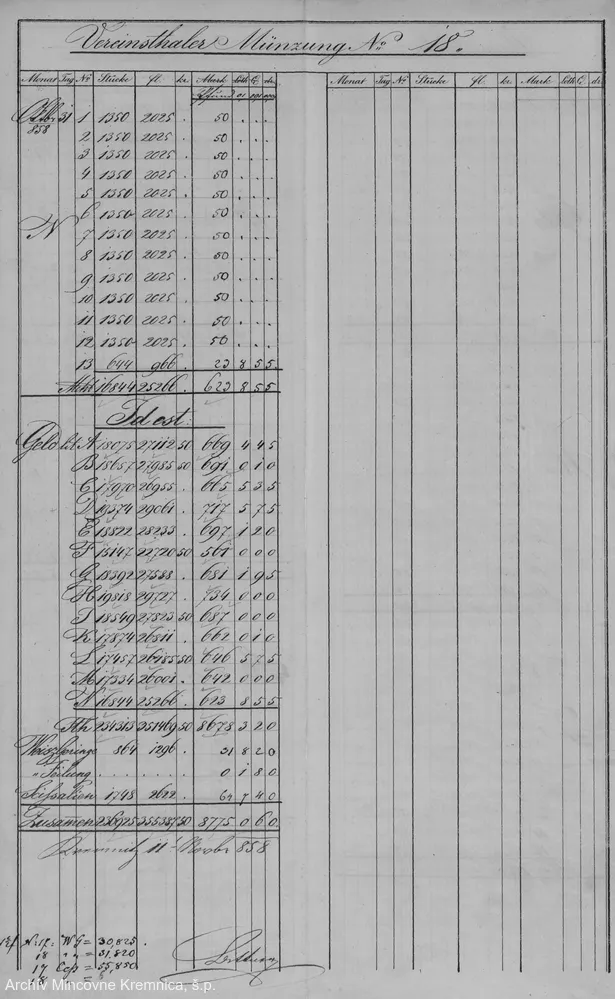 Vereinsthaler Münzung No 18.
Monat Tag No Stücke fl. kr. Mark Loth Q. dr. Monat Tag No Stücke fl. kr. Mark Loth Q. dr.
Pfund
31 1 1350 2025 . 50 . . .
858 2 1350 2025 . 50 . . .
3 1350 2025 . 50 . . .
4 1350 2025 . 50 . . .
5 1350 2025 . 50 . . .
6 1350 2025 . 50 . . .
N 7 1350 2025 . 50 . . .
8 1350 2025 . 50 . . .
9 1350 2025 . 50 . . .
10 1350 2025 . 50 . . .
11 1350 2025 . 50 . . .
12 1350 2025 . 50 . . .
13 644 966 . 23 8 5 5
16844 25266 . 623 8 5 5
Id est:
Geld lit. A 18075 27112 50 669 4 4 5
B 18657 27985 50 691 0 1 0
C 17970 26955 . 665 5 3 5
D 19374 29061 . 717 5 7 5
E 18822 28233 . 697 1 2 0
F 15147 22720 50 561 0 0 0
G 18392 27588 . 681 1 9 5
H 19818 29727 . 734 0 0 0
I 18549 27823 50 687 0 0 0
K 17874 26811 . 662 0 1 0
L 17457 26185 50 646 5 7 5
M 17334 26001 . 642 0 0 0
N 16844 25266 . 623 8 5 5
234313 351469 50 8678 3 2 0
864 1296 . 31 8 2 0
" . . . . . 0 1 8 0
1748 2622 . 64 7 4 0
Zusamen 236925 355387 50 8775 0 6 0
Kremnitz 11 858
No 17: WG = 30,825 .
18 " " = 31,820
17 = 55,850
18
Archív Mincovne Kremnica, š.p.